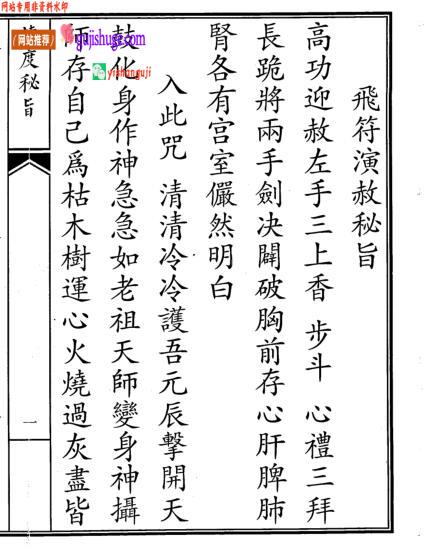 网站专用非资料水印
(网站推荐)
gujishuge.com
yishanguji
飛符演赦秘旨
高功迎赦左手三上香 步斗 心禮三拜
長跪將兩手劍決闢破胸前存心肝脾肺
腎各有宫室儼然明白
入此咒 清清冷冷護吾元辰擊開天
鼓化身作神急急如老祖天師變身神攝
師存自己爲枯木樹運心火燒過灰盡皆
度秘旨
一